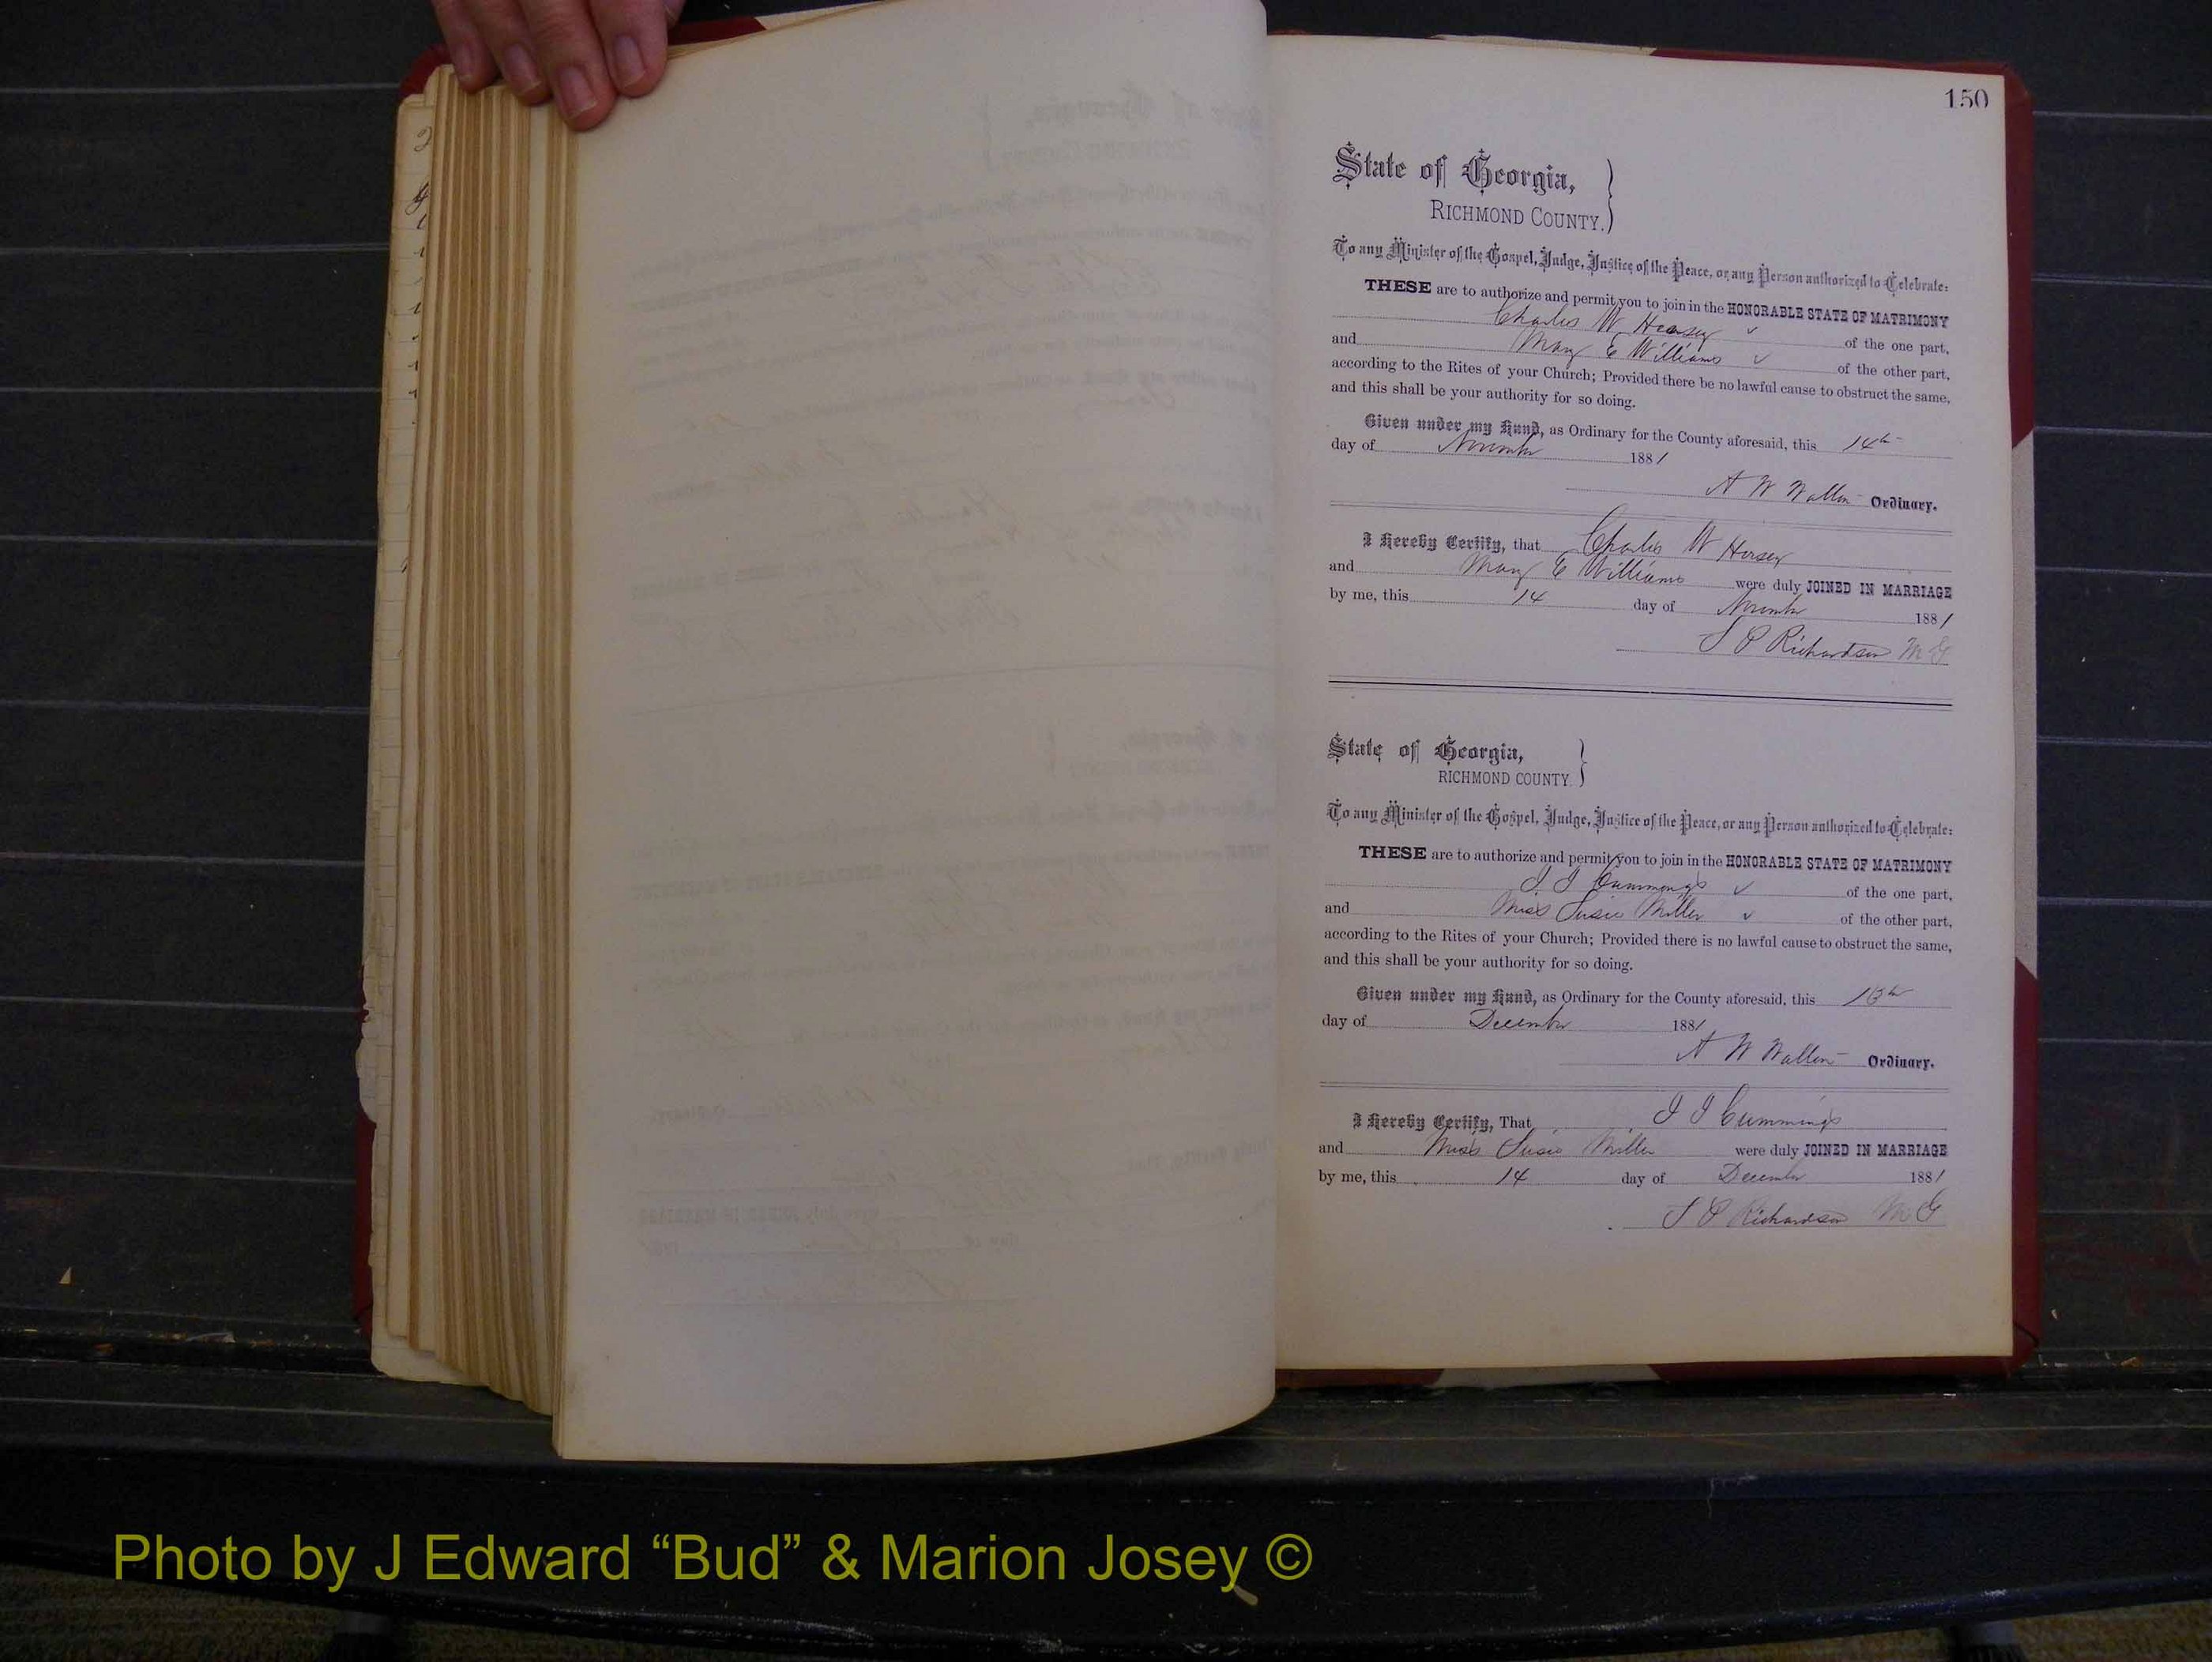 150
State of Georgia,
RICHMOND COUNTY.
To any Minister of the Gospel, Judge, Justice of the Peace, or any Person authorized to Celebrate:
THESE are to authorize and permit you to join in the HONORABLE STATE OF MATRIMONY
Charles W of the one part,
and Mary E Williams of the other part,
according to the Rites of your Church; Provided there be no lawful cause to obstruct the same,
and this shall be your authority for so doing.
Given under my Hand, as Ordinary for the County aforesaid, this 14th
day of November 1881
A W Walton Ordinary.
I Hereby Certify, that Charles W
and Mary E Williams were duly JOINED IN MARRIAGE
by me, this 14 day of November 1881
S P Richardson M G
State of Georgia,
RICHMOND COUNTY.
To any Minister of the Gospel, Judge, Justice of the Peace, or any Person authorized to Celebrate:
THESE are to authorize and permit you to join in the HONORABLE STATE OF MATRIMONY
Cummings of the one part,
and Miss Susie Miller of the other part,
according to the Rites of your Church; Provided there is no lawful cause to obstruct the same,
and this shall be your authority for so doing.
Given under my Hand, as Ordinary for the County aforesaid, this
day of December 1881
A W Walton Ordinary.
I Hereby Certify, That Cummings
and Miss Susie Miller were duly JOINED IN MARRIAGE
by me, this 14 day of December 1881
S P Richardson M G
Photo by J Edward “Bud” & Marion Josey ©